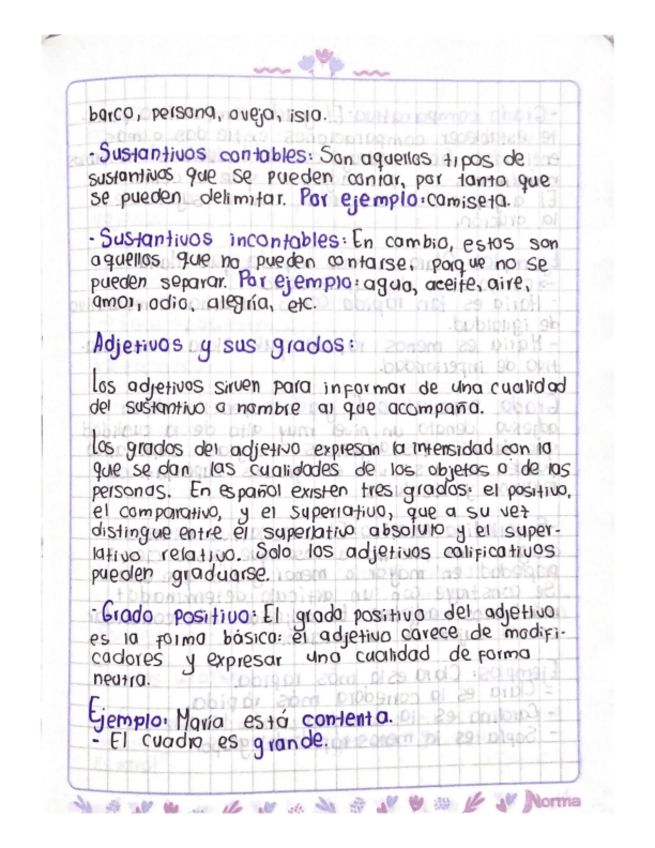 barco, persona, oveja, isla.
- Sustantivos contables: Son aquellos tipos de
sustantivos que se pueden contar, por tanto que
se pueden delimitar. Por ejemplo: camiseta.
- Sustantivos incontables: En cambio, estos son
aquellos que no pueden contarse, porque no se
pueden separar. Por ejemplo: agua, aceite, aire,
amor, odio, alegría, etc.
Adjetivos y sus grados:
Los adjetivos sirven para informar de una cualidad
del sustantivo o nombre al que acompaña.
Los grados del adjetivo expresan la intensidad con la
que se dan las cualidades de los objetos o de las
personas. En español existen tres grados: el positivo,
el comparativo, y el superlativo, que a su vez
distingue entre el superlativo absoluto y el super-
lativo relativo. Solo los adjetivos calificativos
pueden graduarse.
- Grado positivo: El grado positivo del adjetivo
es la forma básica: el adjetivo carece de modifi-
cadores y expresar una cualidad de forma
neutra.
Ejemplo: María está contenta.
- El cuadro es grande.
Norma